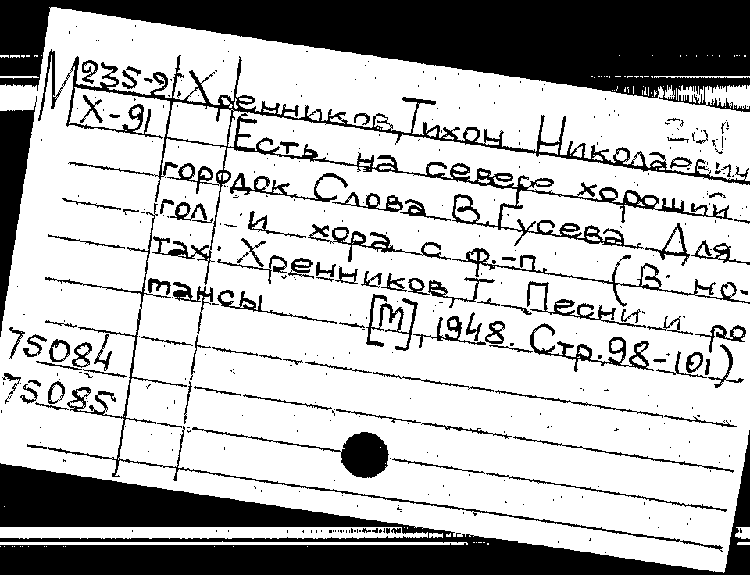 М 235-9: Хренников, Тихон Николаевич
Х-91 208
Есть на севере хороший
городок. Слова В. Гусева. Для
гол. и хора с ф.-п. (В но-
тах: Хренников, Т. Песни и ро
мансы [М], 1948. Стр. 98-101).
75084
75085